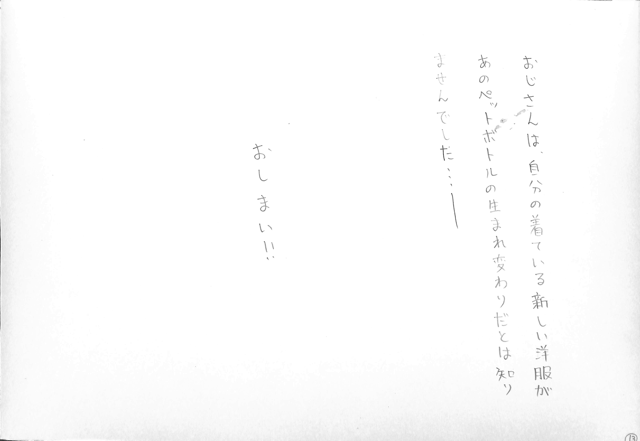 おじさんは、自分の着ている新しい洋服が
あのペットボトルの生まれ変わりだとは知り
ませんでした…ー
おしまい!!